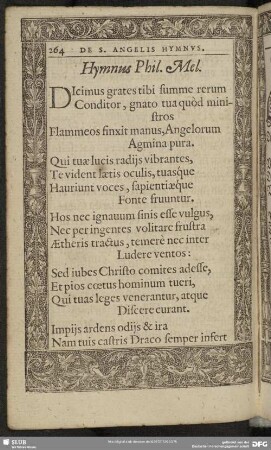 264 DE S. ANGELIS HYMNVS.
Hymnus Phil. Mel.
DIcimus grates tibi summe rerum
Conditor, gnato tua quòd mini-
stros
Flammeos finxit manus, Angelorum
Agmina pura.
Qui tuæ lucis radijs vibrantes,
Te vident lætis oculis, tuasque
Hauriunt voces, sapientiæque
Fonte fruuntur.
Hos nec ignauum sinis esse vulgus,
Nec per ingentes volitare frustra
Ætheris tractus, temerè nec inter
Ludere ventos:
Sed iubes Christo comites adesse,
Et pios cœtus hominum tueri,
Qui tuas leges venerantur, atque
Discere curant.
Impijs ardens odijs & ira
Nam tuis castris Draco semper infert
SLUB
DFG